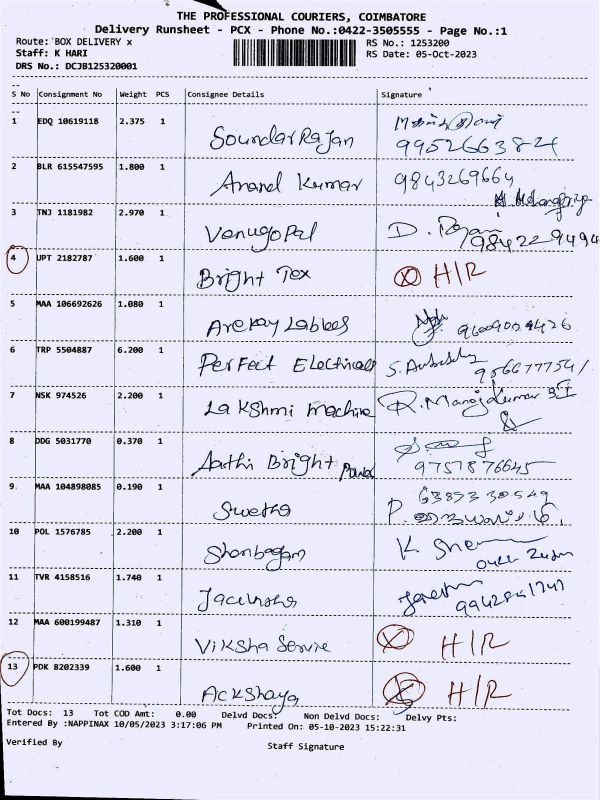 THE PROFESSIONAL COURIERS, COIMBATORE
Delivery Runsheet - PCX - Phone No.:0422-3505555 - Page No.:1
Route: BOX DELIVERY x RS No.: 1253200
Staff: K HARI RS Date: 05-Oct-2023
DRS No.: DCJB125320001
S No Consignment No Weight PCS Consignee Details Signature
1 EDQ 10619118 2.375 1 SoundarRajan
9952663824
2 BLR 615547595 1.800 1 Anand Kumar 9843269664
3 TNJ 1181982 2.970 1 Venugopal D.
984229494
4 UPT 2182787 1.600 1 Bright Tex H/R
5 MAA 106692626 1.080 1 96009004426
6 TRP 5504887 6.200 1 Perfect Electricals S.
7 NSK 974526 2.200 1 Lakshmi machine R. Manoj Kumar
8 DDG 5031770 0.370 1 Aathi Bright Power
9757876645
9 MAA 104898085 0.190 1 Swetha 6385330549
P.
10 POL 1576785 2.200 1 Shanbagam K
11 TVR 4158516 1.740 1
12 MAA 600199487 1.310 1 Viksha Servie H/R
13 PDK 8202339 1.600 1 Ackshaya H/R
Tot Docs: 13 Tot COD Amt: 0.00 Delvd Docs: Non Delvd Docs: Delvy Pts:
Entered By :NAPPINAX 10/05/2023 3:17:06 PM Printed On: 05-10-2023 15:22:31
Verified By Staff Signature